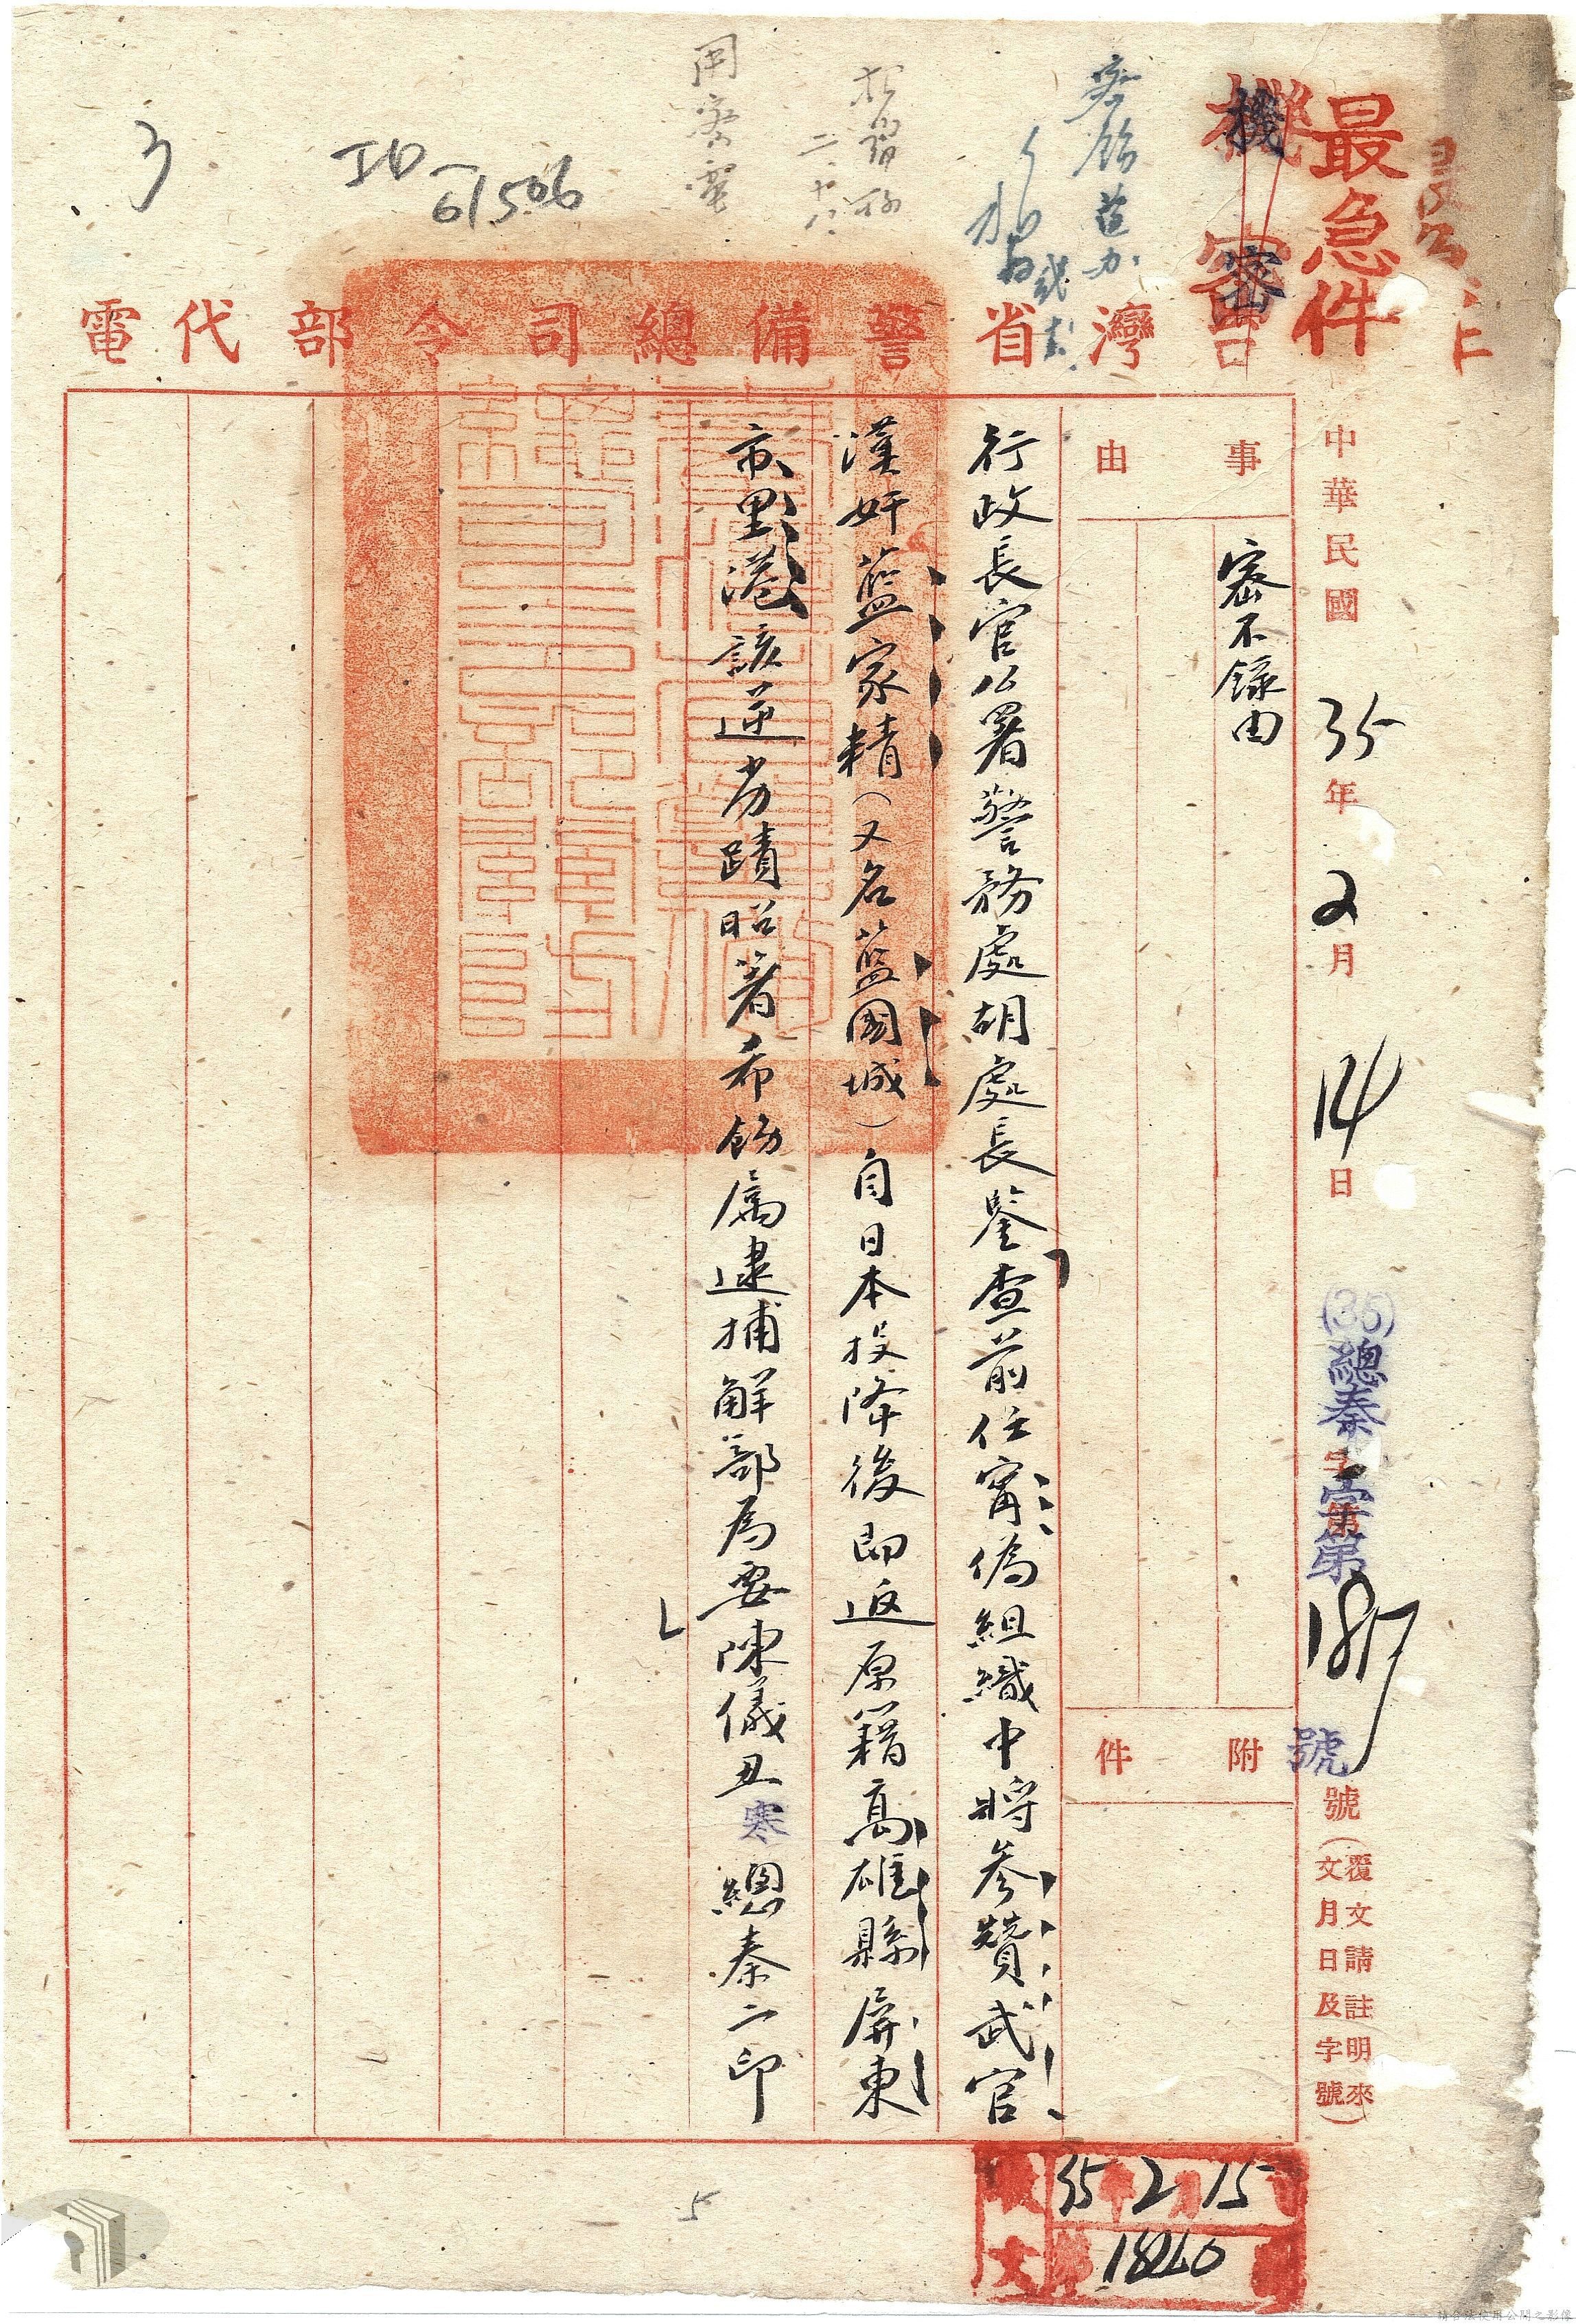 最急件
機密
機密
臺灣省警備總司令部代電
中華民國35年2月14日
(35)總秦字第1817號
字第 號
(覆文請註明來文月日及字號)
事由
密不錄由
附件
行政長官公署警務處胡處長鑒查前任甯偽組織中將參贊武官
漢奸藍家精(又名藍國城)自日本投降後即返原籍高雄縣屏東
市里港該逆劣蹟昭著希飭屬逮捕解部為要陳儀丑寒總秦二印
用密電
二、十八
ID-61506
3
收文
35 2 15
18260
5